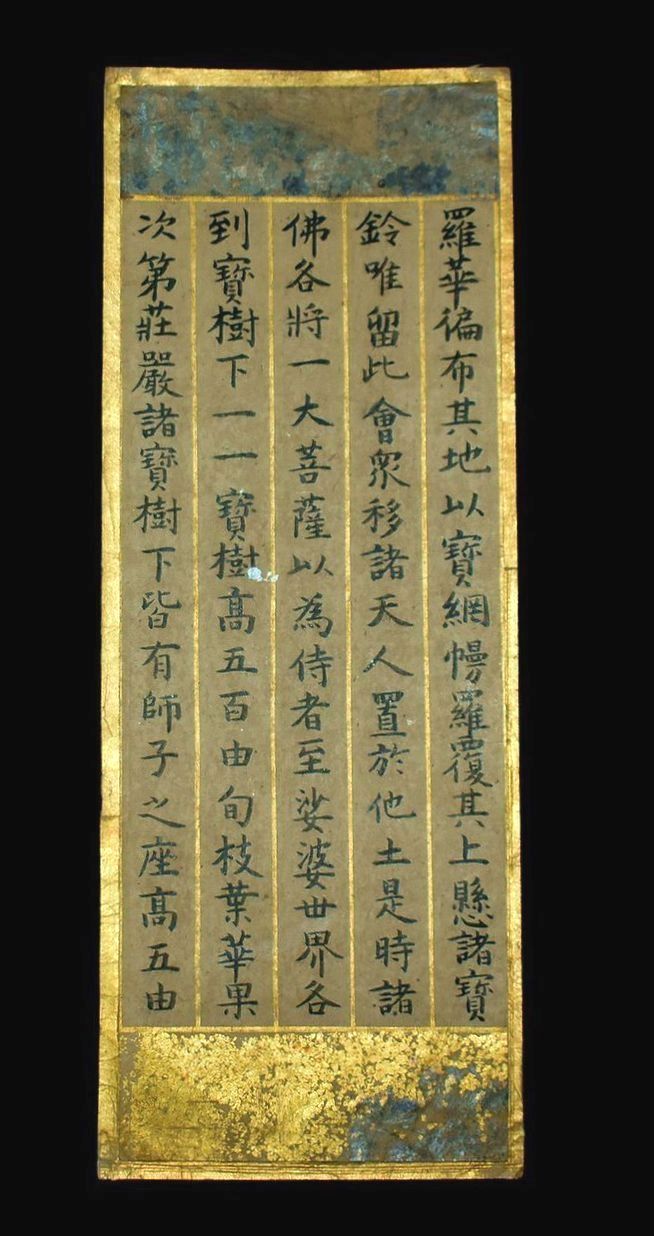 羅華徧布其地以寶網幔羅覆其上懸諸寶
鈴唯留此會衆移諸天人置於他土是時諸
佛各將一大菩薩以為侍者至娑婆世界各
到寶樹下一一寶樹高五百由旬枝葉華果
次第莊嚴諸寶樹下皆有師子之座高五由